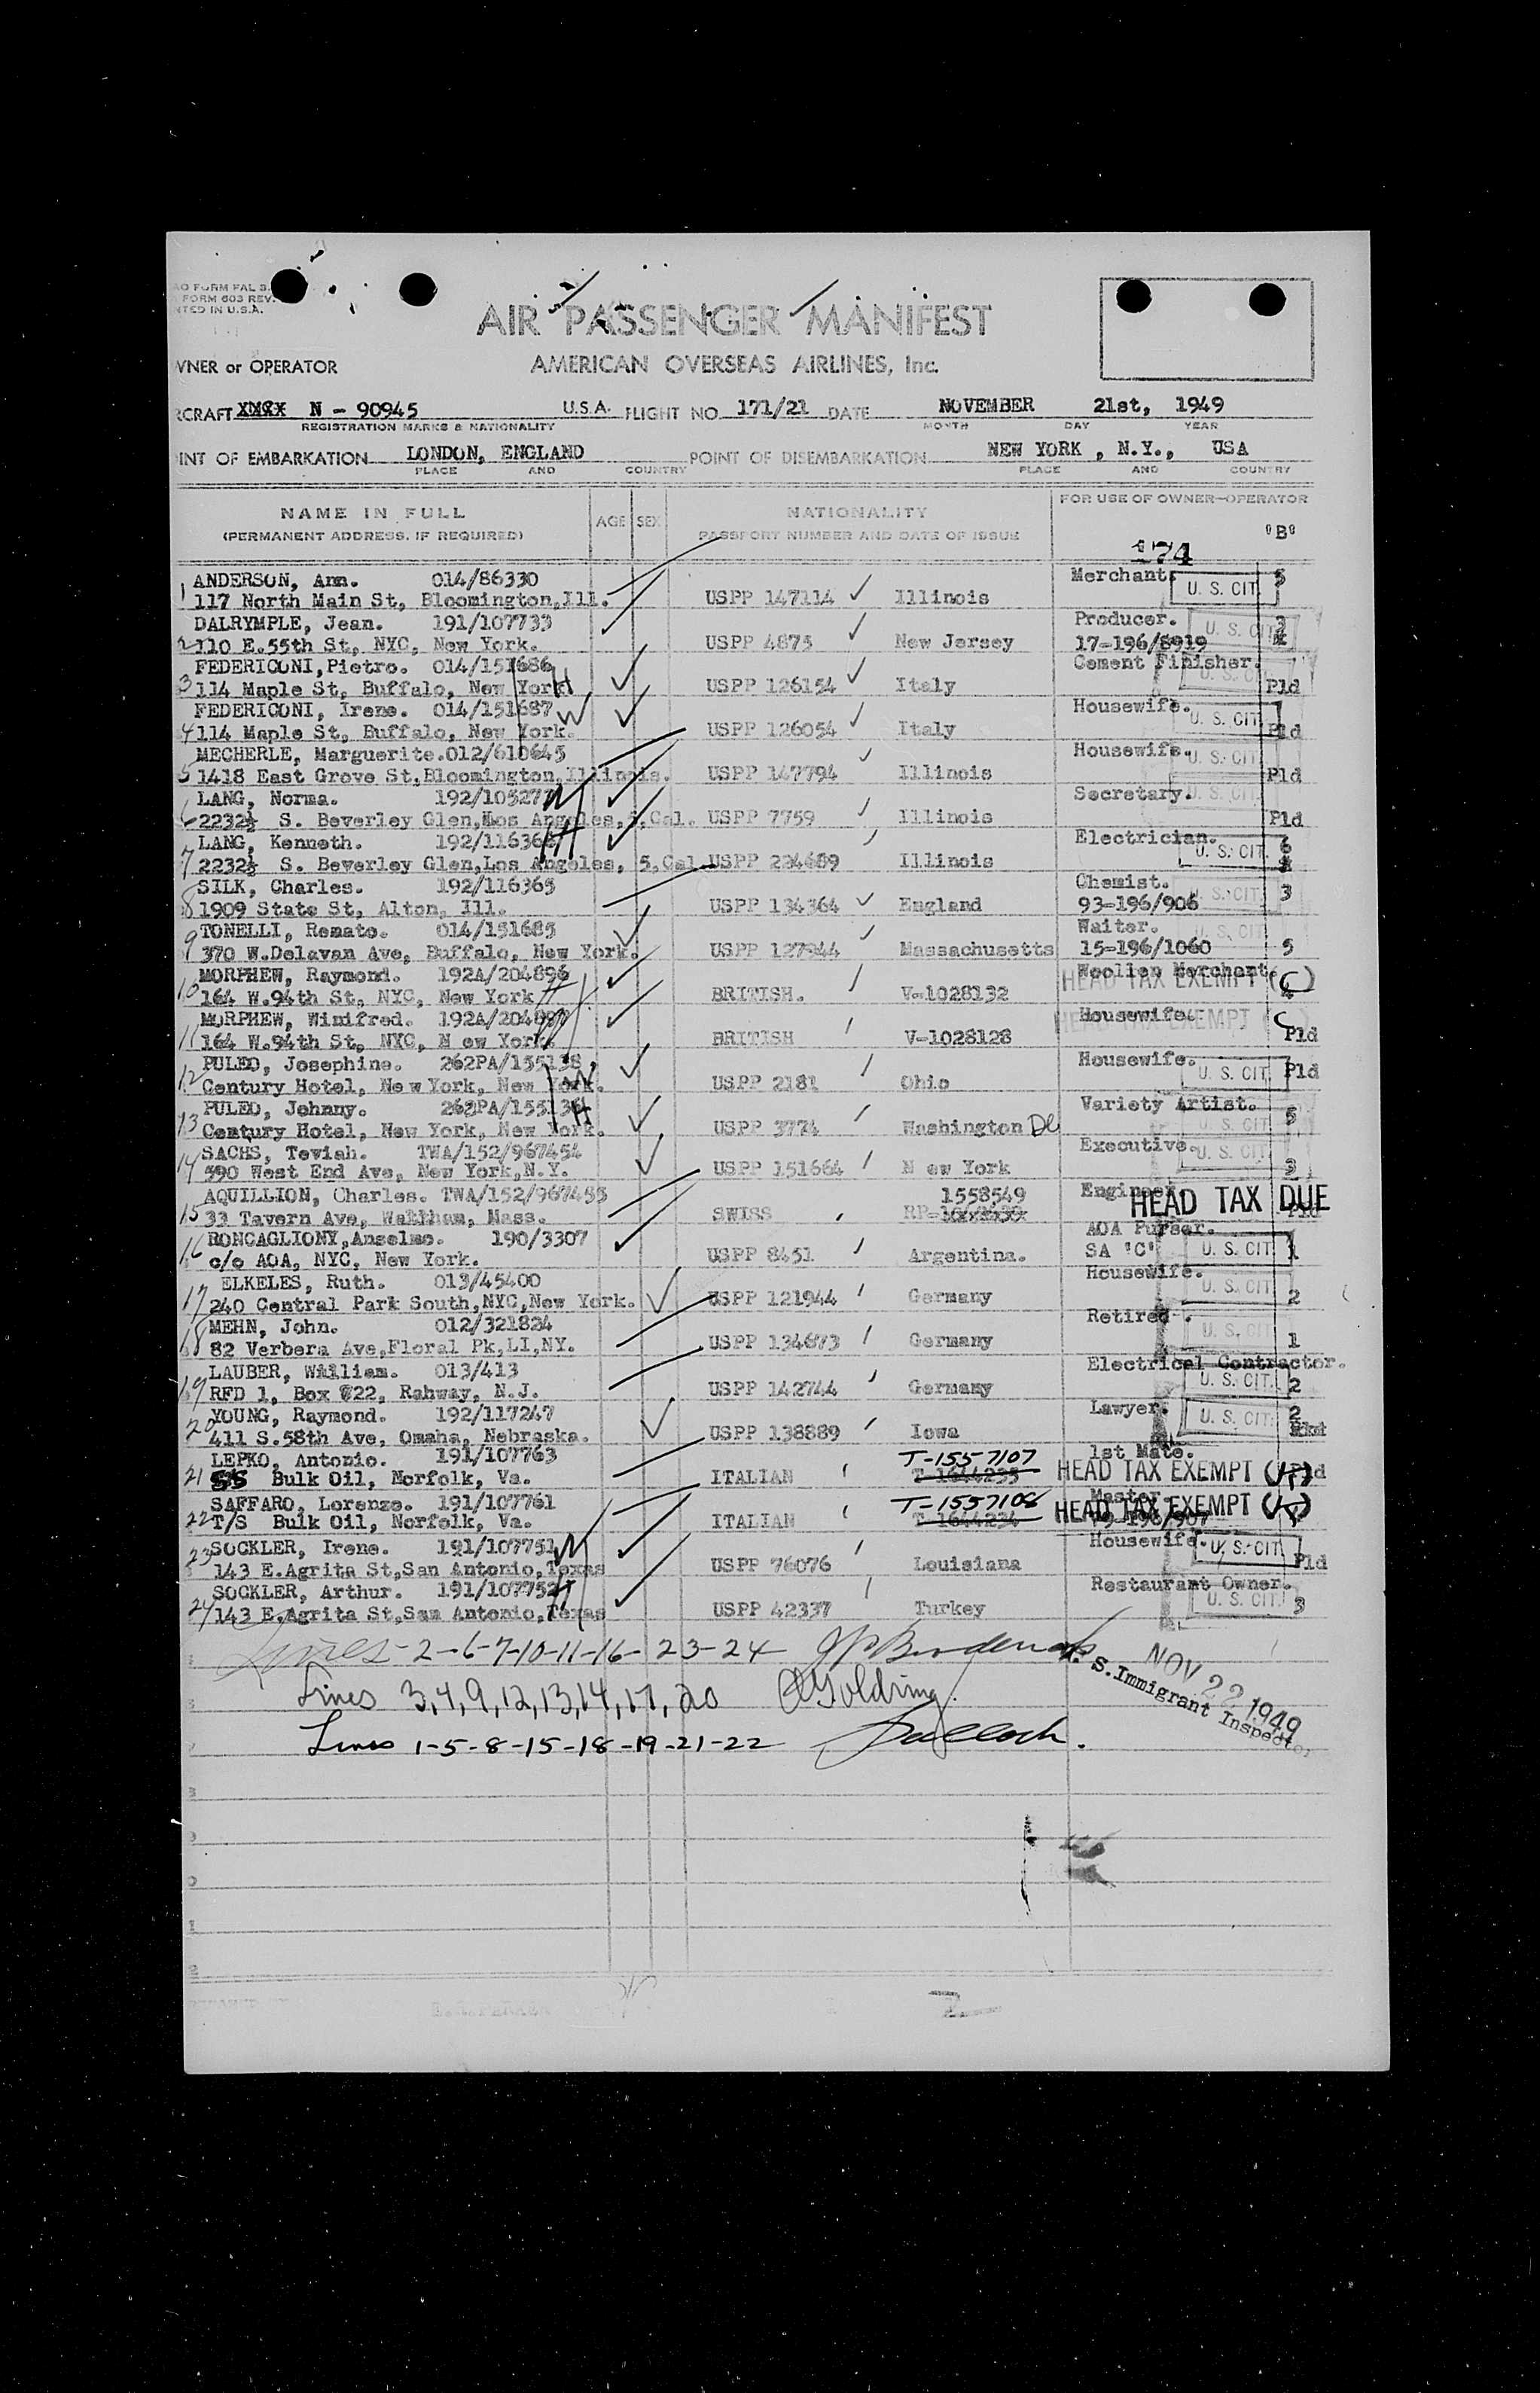 AO FORM FAL 3.
FORM 603 REV.
NTED IN U.S.A.
AIR PASSENGER MANIFEST
WNER or OPERATOR AMERICAN OVERSEAS AIRLINES, Inc.
RCRAFT N - 90945 U.S.A. FLIGHT NO. 171/21 DATE NOVEMBER 21st, 1949
REGISTRATION MARKS & NATIONALITY MONTH DAY YEAR
INT OF EMBARKATION LONDON, ENGLAND POINT OF DISEMBARKATION NEW YORK , N.Y., USA
PLACE AND COUNTRY PLACE AND COUNTRY
NAME IN FULL AGE SEX NATIONALITY FOR USE OF OWNER-OPERATOR
(PERMANENT ADDRESS, IF REQUIRED) PASSPORT NUMBER AND DATE OF ISSUE "B"
174
ANDERSON, Ann. 014/86330 Merchant. 5
1 117 North Main St, Bloomington,Ill. USPP 147114 Illinois U. S. CIT.
DALRYMPLE, Jean. 191/107733 Producer.
2 110 E.55th St, NYC, New York. USPP 4875 New Jersey 17-196/8919 U. S. CIT
FEDERICONI,Pietro. 014/151686 Cement Finisher.
3 114 Maple St, Buffalo, New York H USPP 126154 Italy U. S. C Pld
FEDERICONI, Irene. 014/151687 W Housewife.
4 114 Maple St, Buffalo, New York. USPP 126054 Italy U. S. CIT Pld
MECHERLE, Marguerite.012/610645 Housewife.
5 1418 East Grove St,Bloomington,Illinois. USPP 147794 Illinois U. S. CIT Pld
LANG, Norma. 192/105277 W Secretary.
6 2232½ S. Beverley Glen,Los Angeles,5,Cal. USPP 7759 Illinois U. S. CIT. Pld
LANG, Kenneth. 192/116366 H Electrician. 6
7 2232½ S. Beverley Glen,Los Angeles, 5,Cal USPP 224689 Illinois U. S. CIT.
SILK, Charles. 192/116365 Chemist.
8 1909 State St, Alton, Ill. USPP 134364 England 93-196/906 U. S. CIT 3
TONELLI, Renato. 014/151685 Waiter.
9 370 W.Delavan Ave, Buffalo, New York. USPP 127944 Massachusetts 15-196/1060 U. S. CIT 5
MORPHEW, Raymond. 192A/204896 Woollen Merchant
10 164 W.94th St, NYC, New York H BRITISH. V-1028132 HEAD TAX EXEMPT (C)
MORPHEW, Winifred. 192A/204897 Housewife.
11 164 W.94th St, NYC, N ew York. BRITISH V-1028128 HEAD TAX EXEMPT (C Pld
PULEO, Josephine. 262PA/155138 Housewife.
12 Century Hotel, New York, New York. W USPP 2181 Ohio U. S. CIT. Pld
PULEO, Johnny. 262PA/155136 H Variety Artist.
13 Century Hotel, New York, New York. USPP 3774 Washington DC U. S. CIT 5
SACHS, Teviah. TWA/152/967454 Executive.
14 590 West End Ave, New York,N.Y. USPP 151664 N ew York U. S. CIT 3
AQUILLION, Charles. TWA/152/967455 1558549 Engineer
15 33 Tavern Ave, Waltham, Mass. SWISS HEAD TAX DUE
RONCAGLIONY,Anselmo. 190/3307 AOA Purser.
16 c/o AOA, NYC, New York. USPP 8451 Argentina. SA "C" U. S. CIT. 1
ELKELES, Ruth. 013/45400 Housewife.
17 240 Central Park South,NYC,New York. USPP 121944 Germany U. S. CIT 2
MEHN, John. 012/321824 Retired.
18 82 Verbera Ave,Floral Pk,LI,NY. USPP 134673 Germany U. S. CIT 1
LAUBER, William. 013/413 Electrical Contractor.
19 RFD 1, Box 822, Rahway, N.J. USPP 142744 Germany U. S. CIT. 2
YOUNG, Raymond. 192/117247 Lawyer. 2
20 411 S.58th Ave, Omaha, Nebraska. USPP 138889 Iowa U. S. CIT.
LEPKO, Antonio. 191/107763 T-1557107 1st Mate.
21 SS Bulk Oil, Norfolk, Va. ITALIAN T-1644235 HEAD TAX EXEMPT Pld
SAFFARO, Lorenzo. 191/107761 T-1557106 Master.
22 T/S Bulk Oil, Norfolk, Va. ITALIAN T-1644234 HEAD TAX EXEMPT
SOCKLER, Irene. 191/107751 W Housewife.
23 143 E.Agrita St,San Antonio,Texas USPP 76076 Louisiana U. S. CIT Pld
SOCKLER, Arthur. 191/107752 H Restaurant Owner.
24 143 E.Agrita St,San Antonio,Texas USPP 42337 Turkey U. S. CIT. 3
Lines-2-6-7-10-11-16-23-24
Lines 3,4,9,12,13,14,17,20 Golding
Lines 1-5-8-15-18-19-21-22
NOV 22 1949
U. S. Immigrant Inspector